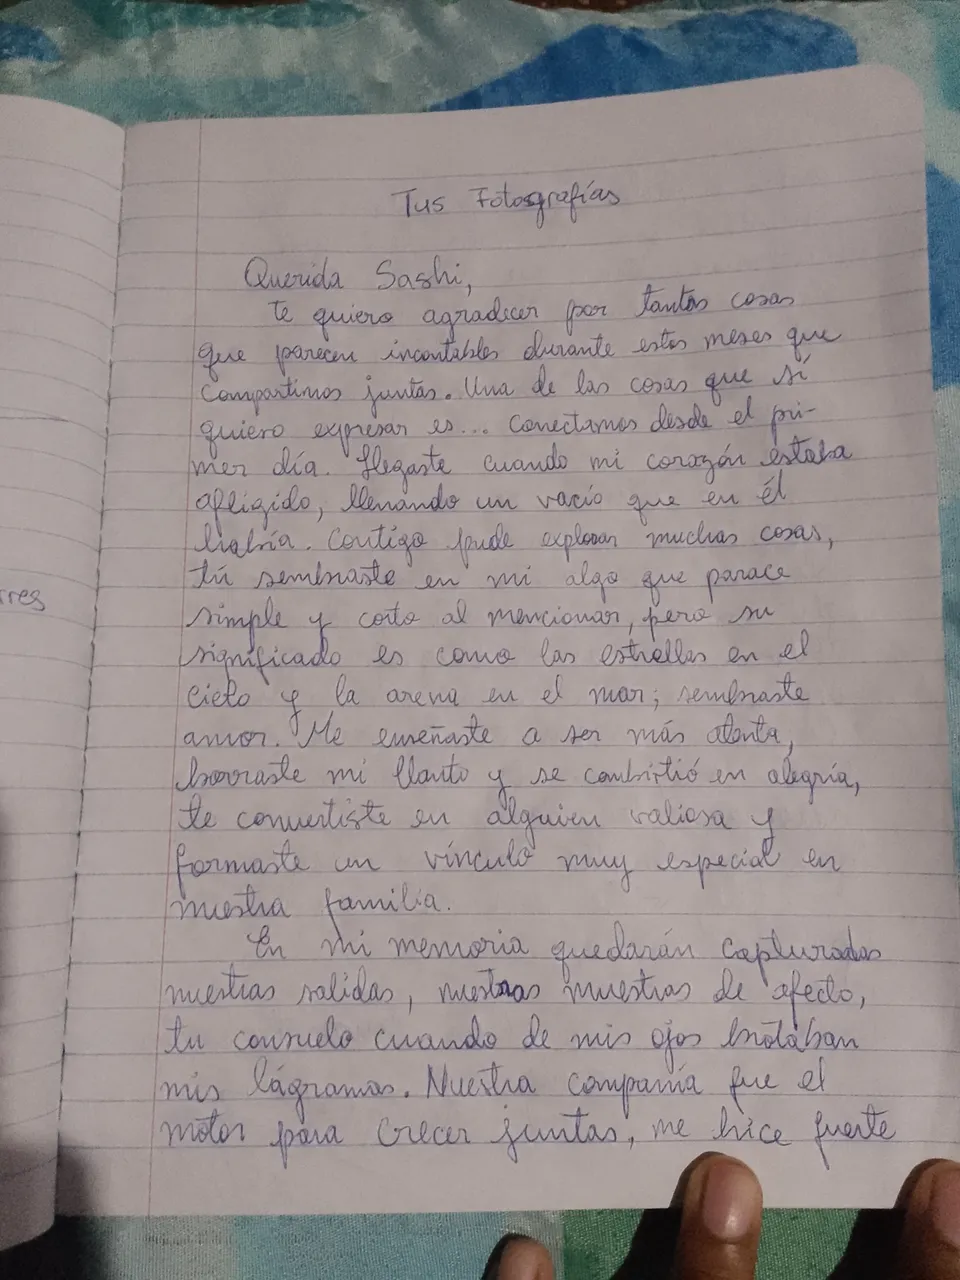 Tus Fotografías
Querida Sashi,
te quiero agradecer por tantas cosas
que parecen incontables durante estos meses que
compartimos juntas. Una de las cosas que sí
quiero expresar es... Conectamos desde el pri-
mer día. Llegaste cuando mi corazón estaba
afligido, llenando un vacío que en él
habría. Contigo pude explorar muchas cosas,
tú sembraste en mi algo que parace
simple y corto al mencionar, pero su
significado es como las estrellas en el
cielo y la arena en el mar; sembraste
amor. Me enseñaste a ser más atenta,
borraste mi llanto y se conbirtió en alegría,
te convertiste en alguien valiosa y
formaste un vínculo muy especial en
nuestra familia.
En mi memoria quedarán capturadas
nuestras salidas, nuestras muestras de afecto,
tu consuelo cuando de mis ojos brotában
mis lágramas. Nuestra companía fue el
motor para crecer juntas, me hice fuerte
rres